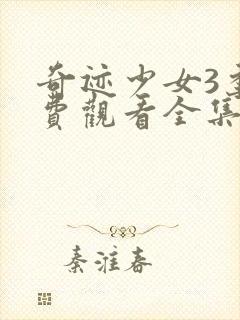 奇迹少女3
費觀看全集
秦淮春